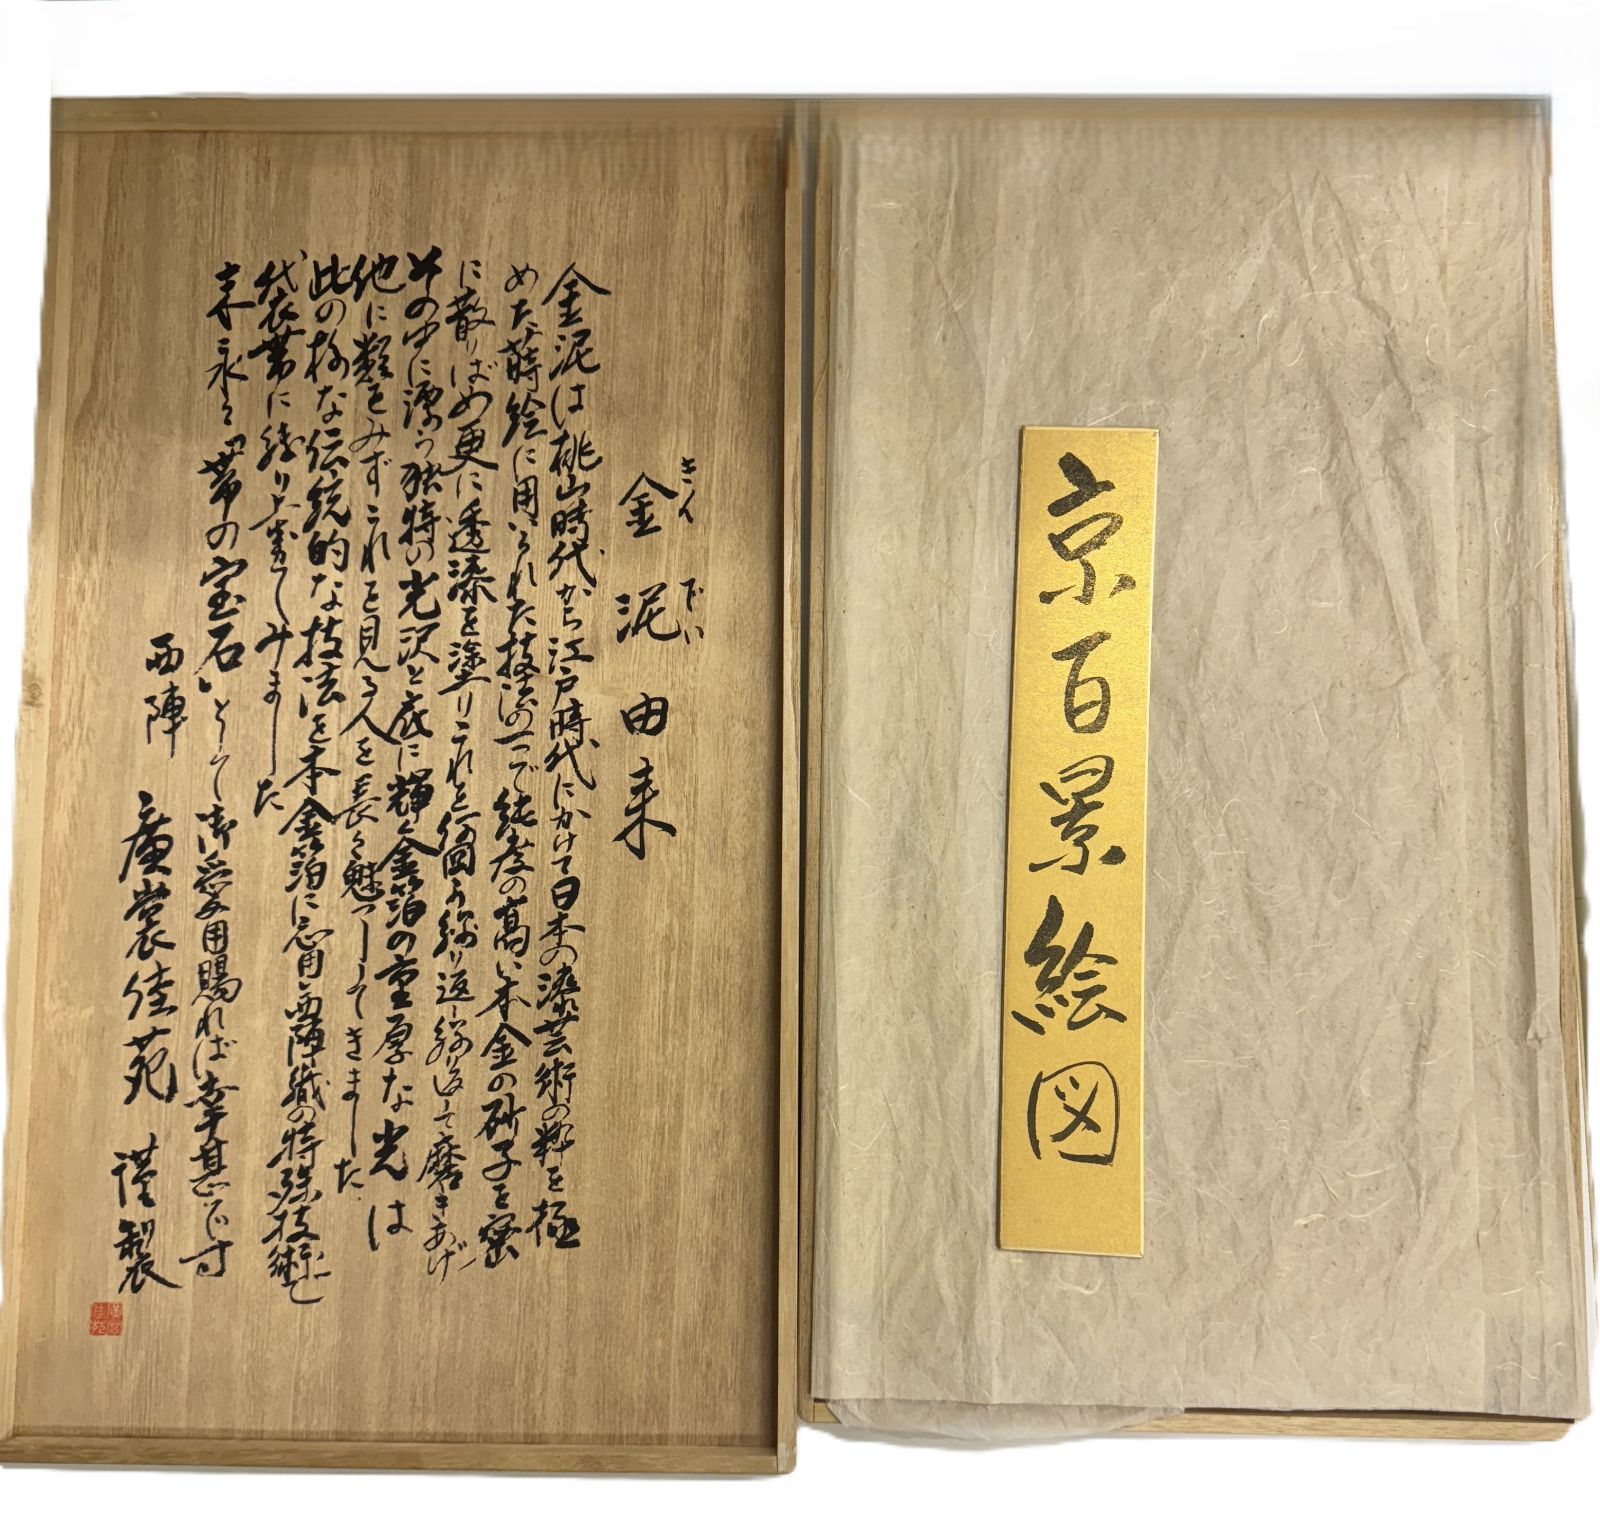 京百景絵図
きんでい
金泥由来
金泥は桃山時代から江戸時代にかけて日本の漆芸術の粋を極
めた蒔絵に用いられた技法の一つで純度の高い本金の砂子を密
に散りばめ更に透漆を塗りこれを何回も繰り返し繰り返して磨きあげ
その中に漂う独特の光沢と底に輝く金箔の重厚な光は
他に類をみずこれを見る人を長く魅了してきました
此の様な伝統的な技法を本金箔に応用し西陣織の特殊技術で
袋帯に織り上げてみました
末永く『帯の宝石』として御愛用賜れば幸甚です
西陣 廣裳佳苑 謹製